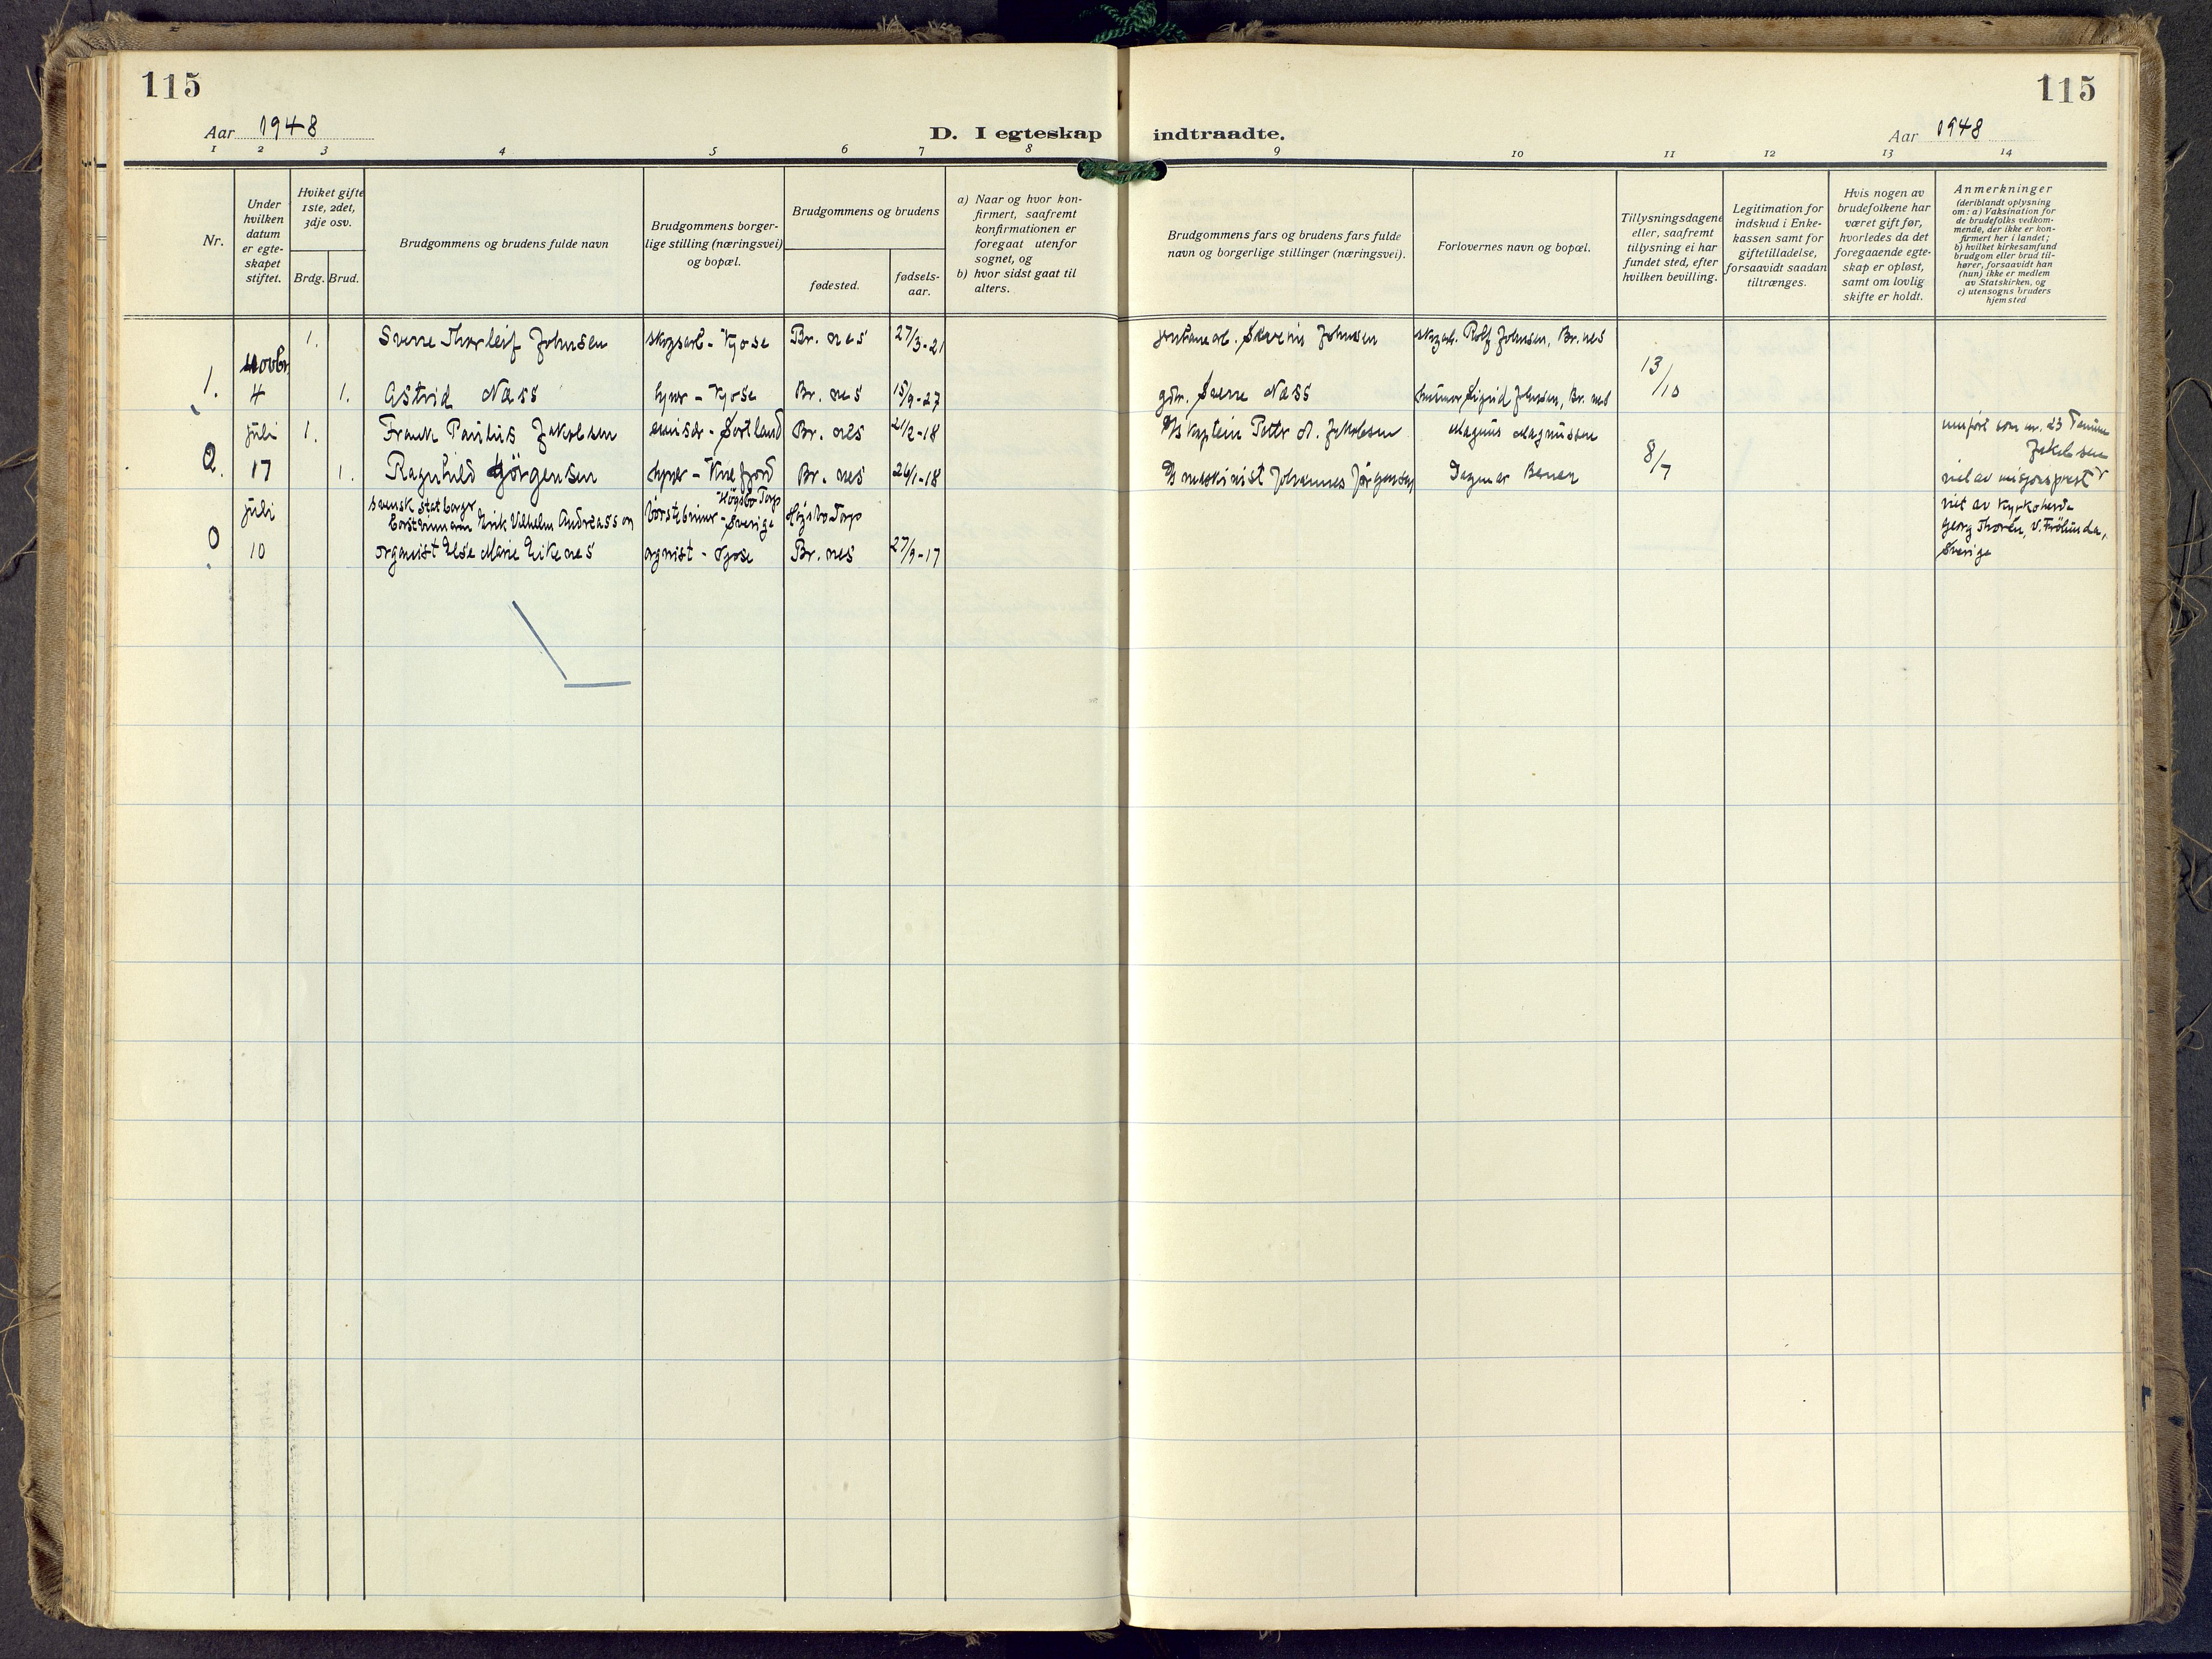 115
115
Aar 1948
D. I egteskap indtraadte.
Aar 1948
1 2 3 4 5 6 7 8 9 10 11 12 13 14
Nr.
Under
hvilken
datum
er egte-
skapet
stiftet.
Hviket gifte
1ste, 2det,
3dje osv.
Brdg. Brud.
Brudgommens og brudens fulde navn
Brudgommens borger-
lige stilling (næringsvei)
og bopæl.
Brudgommens og brudens
fødested.
fødsels-
aar.
a) Naar og hvor kon-
firmert, saafremt
konfirmationen er
foregaat utenfor
sognet, og
b) hvor sidst gaat til
alters.
Brudgommens fars og brudens fars fulde
navn og borgerlige stillinger (næringsvei).
Forlovernes navn og bopæl.
Tillysningsdagene
eller, saafremt
tillysning ei har
fundet sted, efter
hvilken bevilling.
Legitimation for
indskud i Enke-
kassen samt for
giftetilladelse,
forsaavidt saadan
tiltrænges.
Hvis nogen av
brudefolkene har
været gift før,
hvorledes da det
foregaaende egte-
skap er opløst,
samt om lovlig
skifte er holdt.
Anmerkninger
(deriblandt oplysning
om: a) Vaksination for
de brudefolks vedkom-
mende, der ikke er kon-
firmert her i landet;
b) hvilket kirkesamfund
brudgom eller brud til-
hører, forsaavidt han
(hun) ikke er medlem
av Statskirken, og
c) utensogns bruders
hjemsted
1. Sverre Thorleif Johnsen skogsarb - Kjose Br. nes 27/3-21 Johnsen skogarb. Rolf Johnsen, Br. nes
novbr. 13/10
1. 4 1. Astrid Næss Kjose Br. nes 15/9-27 gdbr. Sverre Næss Sigrid Johnsen, Br. nes
juli 1. Frank Paulus Jakobsen - Sortland Br. nes 21/2-18 Kaptein Jakobsen Magnus Magnussen som nr. 23
Jakobsen
2. 17 1. Ragnhild Jörgensen Br. nes 26/1-18 maskinist Johannes Jörgensen Dagmar 8/7 viet av misjonsprest
juli svensk statborger
Erik Vilhelm Andreasson Högsbo Torp
Sverige Högsbo Torp viet av Kyrkoherde
Georg Thorén, V. Frölunda,
Sverige
0 10 organist Else Marie Eikenes - Kjose Br. nes 27/9-17